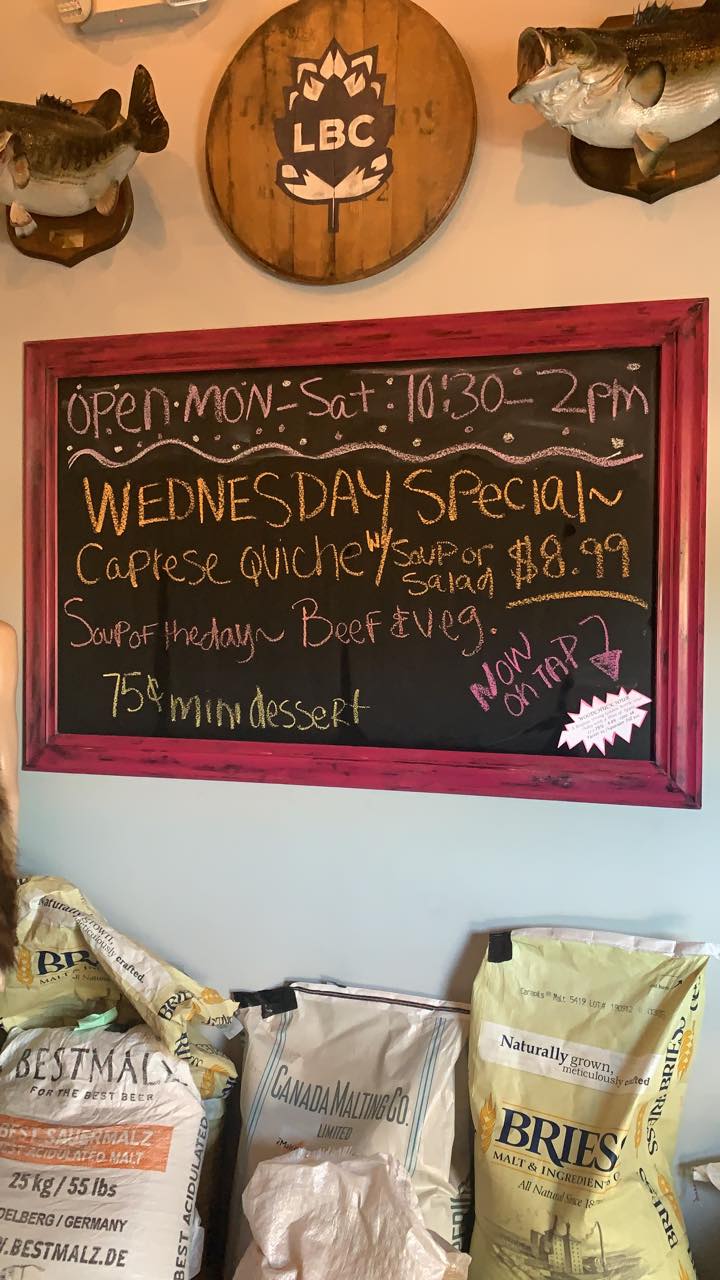 LBC
OPen MON-Sat: 10:30-2pm
WEDNESDAY SPecial~
Caprese Quiche w/ Soup or Salad $8.99
Soup of the day~ Beef & veg.
75¢ mini dessert
NOW
ON TAP
Naturally grown,
meticulously crafted.
BR
MALT & IN
All Natural
BESTMALZ
FOR THE BEST BEER
BEST SAUERMALZ
ACIDULATED MALT
25 kg / 55 lbs
DELBERG / GERMANY
W.BESTMALZ.DE
BEST ACIDULATED
CANADA MALTING CO.
LIMITED
Carapils Malt 5419 LOT# 190912
Naturally grown,
meticulously crafted
BRIES
MALT & INGREDIENTS CO
All Natural Since 18
BRIESS